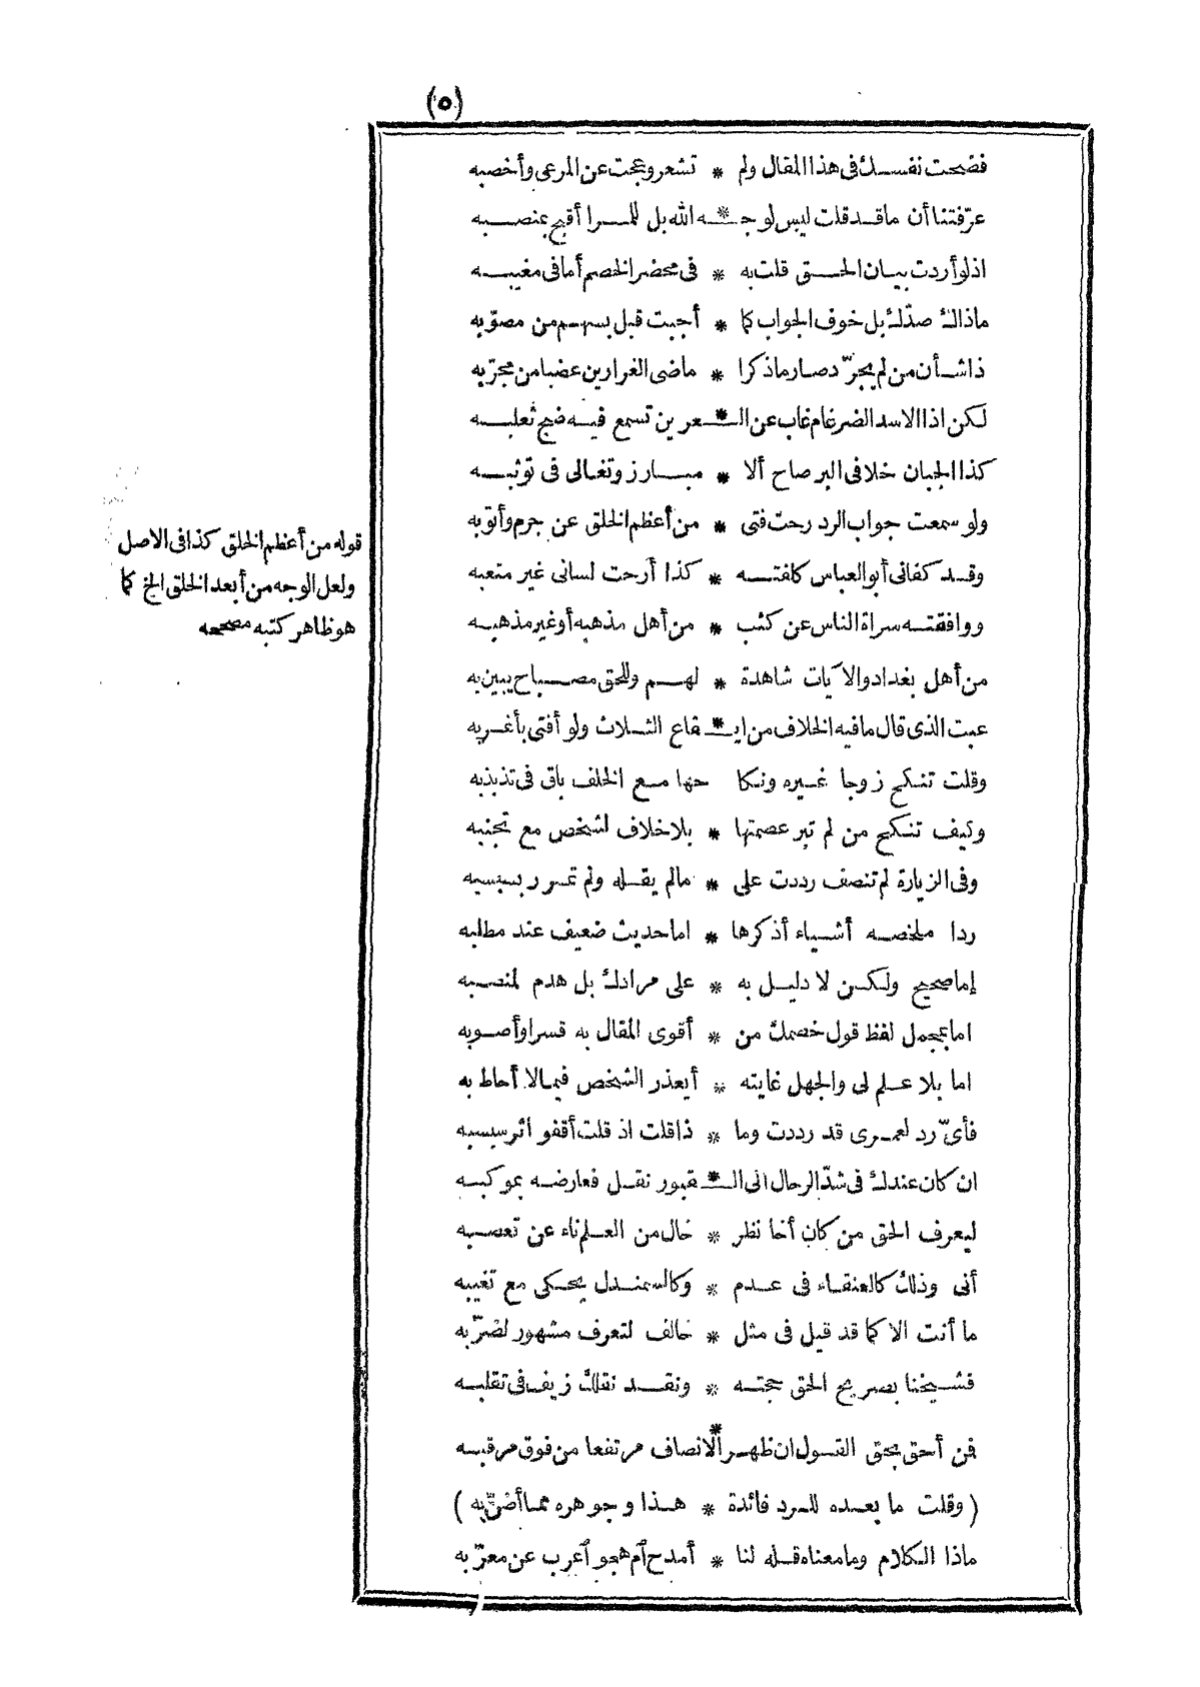 (٥)
فضحت نفسك فى هذا المقال ولم * تشعر وعجت عن المرعى وأخصبه
عرّفتنا أن ماقد قلت ليس لوجـ * ـه الله بل للمرا أقبح بمنصبه
اذ لو أردت بيان الحق قلت به * فى محضر الخصم أما فى مغيبه
ماذاك صدّك بل خوف الجواب كما * أجبت قبل بسهم من مصوّبه
ذا شأن من لم يجرّد صارما ذكرا * ماضى الغرارين عضبا من مجرّبه
لكن اذا الاسد الضرغام غاب عن الـ * ـعرين تسمع فيه ضج ثعلبه
كذا الجبان خلا فى البر صاح ألا * مبارز وتغالى فى توثبه
ولو سمعت جواب الرد رحت فتى * من أعظم الخلق عن جرم وأتوبه
وقد كفانى أبو العباس كلفته * كذا أرحت لسانى غير متعبه
ووافقته سراة الناس عن كثب * من أهل مذهبه أو غير مذهبه
من أهل بغداد والآيات شاهدة * لهم وللحق مصباح يبين به
عبت الذى قال مافيه الخلاف من ايـ * ـقاع الثلاث ولو أفتى بأغربه
وقلت تنكح زوجا غيره ونكا حها مع الخلف باق فى تذبذبه
وكيف تنكح من لم تبر عصمتها * بلاخلاف لشخص مع تجنبه
وفى الزيارة لم تنصف رددت على * مالم يقله ولم تمرر بسبسبه
ردا ملخصه أشياء أذكرها * اما حديث ضعيف عند مطلبه
إما صحيح ولكن لا دليل به * على مرادك بل هدم لمنصبه
اما بمجمل لفظ قول خصمك من * أقوى المقال به قسرا وأصوبه
اما بلا علم لى والجهل غايته * أيعذر الشخص فيما لا أحاط به
فأىّ رد لعمرى قد رددت وما * ذا قلت اذ قلت أقفو اثر سبسبه
ان كان عندك فى شدّ الرحال الى الـ * ـقبور نقل فعارضه بموكبه
ليعرف الحق من كان أخا نظر * خال من العلم ناء عن تعصبه
أنى وذلك كالعنقاء فى عدم * وكالسمندل يحكى مع تغيبه
ما أنت الا كما قد قيل فى مثل * خالف لتعرف مشهور لضرّبه
فشيخنا بصريح الحق حجته * ونقد نقلك زيف فى تقلبه
فمن أحق بحق القول ان ظهر * الانصاف مرتفعا من فوق مرقبه
(وقلت ما بعده للرد فائدة * هذا وجوهره مما أضنّ به)
ماذا الكلام ومامعناه قله لنا * أمدح أم هجو أعرب عن معرّبه
قوله من أعظم الخلق كذا فى الاصل
ولعل الوجه من أبعد الخلق الخ كما
هو ظاهر كتبه مصححه